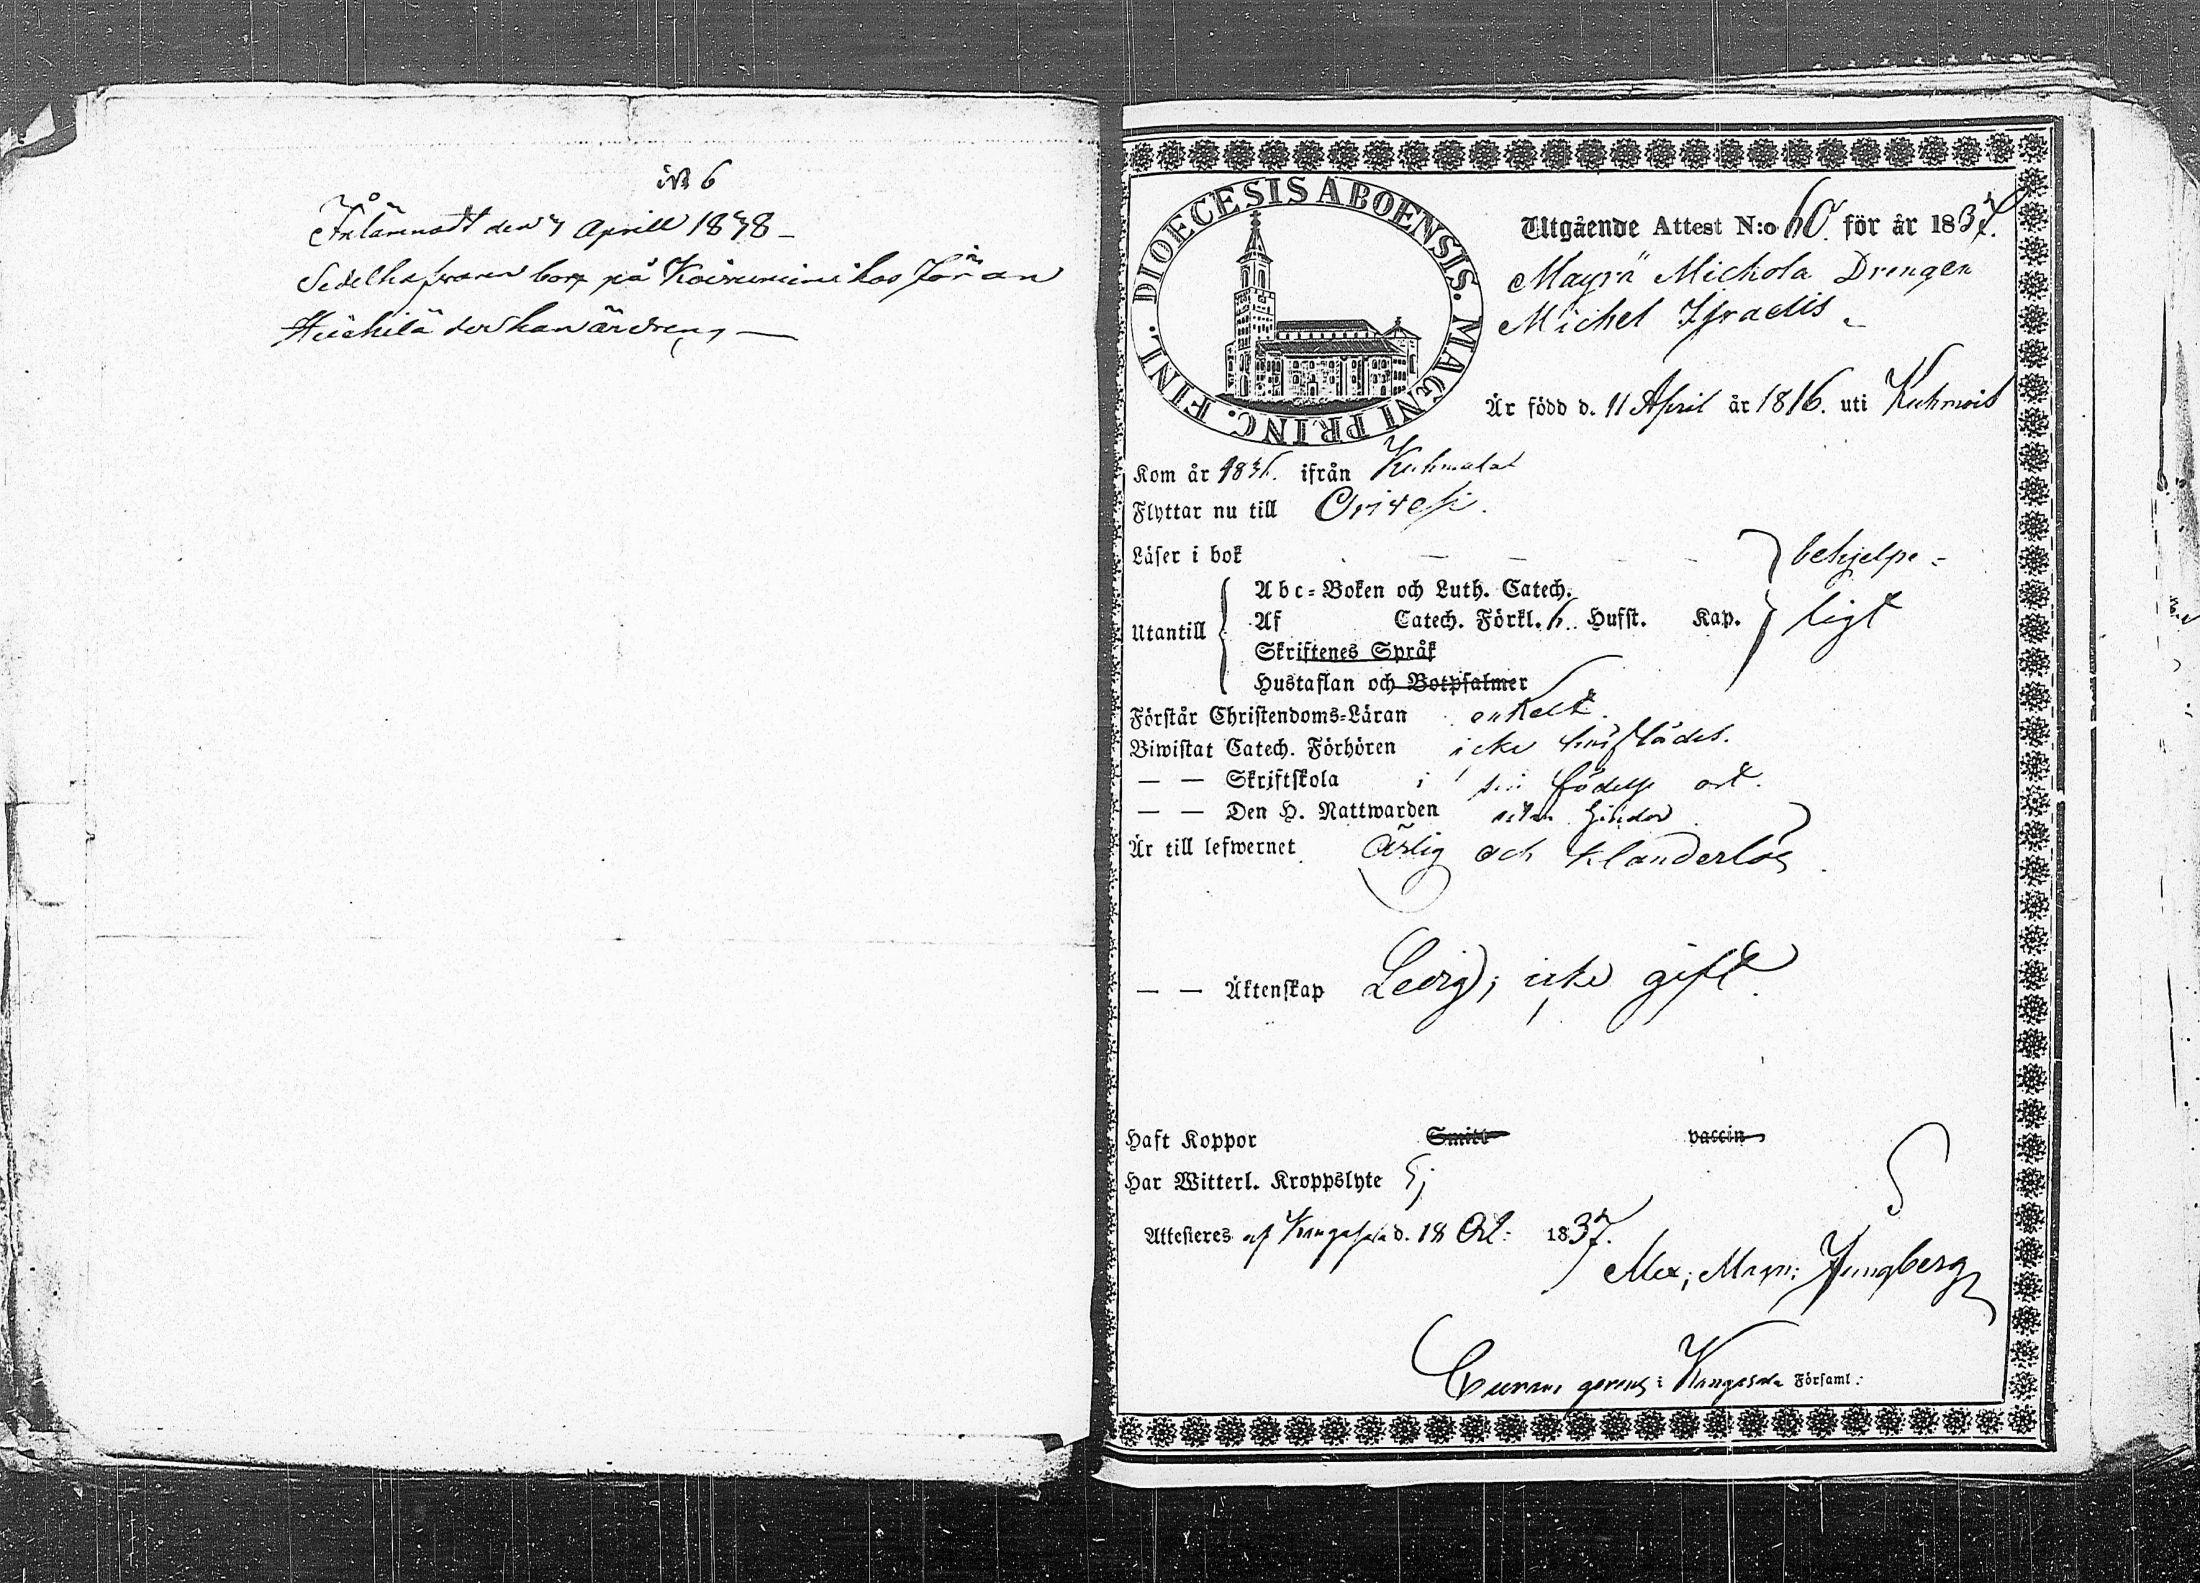 N 6
Inlämnadt den 7 Aprill 1838 –
Sedelhafvaren bor på Koivuniemi hos Jöran
Heickilä der han är dreng, —
DIOECESIS ABOENSIS. MAGNI PRINC. FINL.
Utgående Attest N:o 60. för år 1837.
Mayrä Mickola Drengen
Michel Israelis.
Är född d. 11 April år 1816. uti Kuhmois
Kom år 1836. ifrån Kuhmalat
Flyttar nu till Orivesi.
Läser i bok — — — behjelpe-
Utantill
Abc-Boken och Luth. Catech.
Af Catech. Förkl. 6. Hufst. Kap. ligt
Skriftenes Språk
Hustaflan och Botpsalmer
Förstår Christendoms-Läran enkelt.
Biwistat Catech. Förhören icke härstädes.
— — Skriftskola i sin födelse ort.
— — Den H. Nattwarden utan hinder
Är till lefwernet ärlig och klanderlös.
— — Äktenskap Ledig; icke gift.
Haft Koppor Smitt vaccin
Har Witterl. Kroppslyte Ej
Attesteres af Kangasala d. 18 Oct: 1837.
Alex; Magn; Ljungberg
Curam gerens i Kangasala Församl: